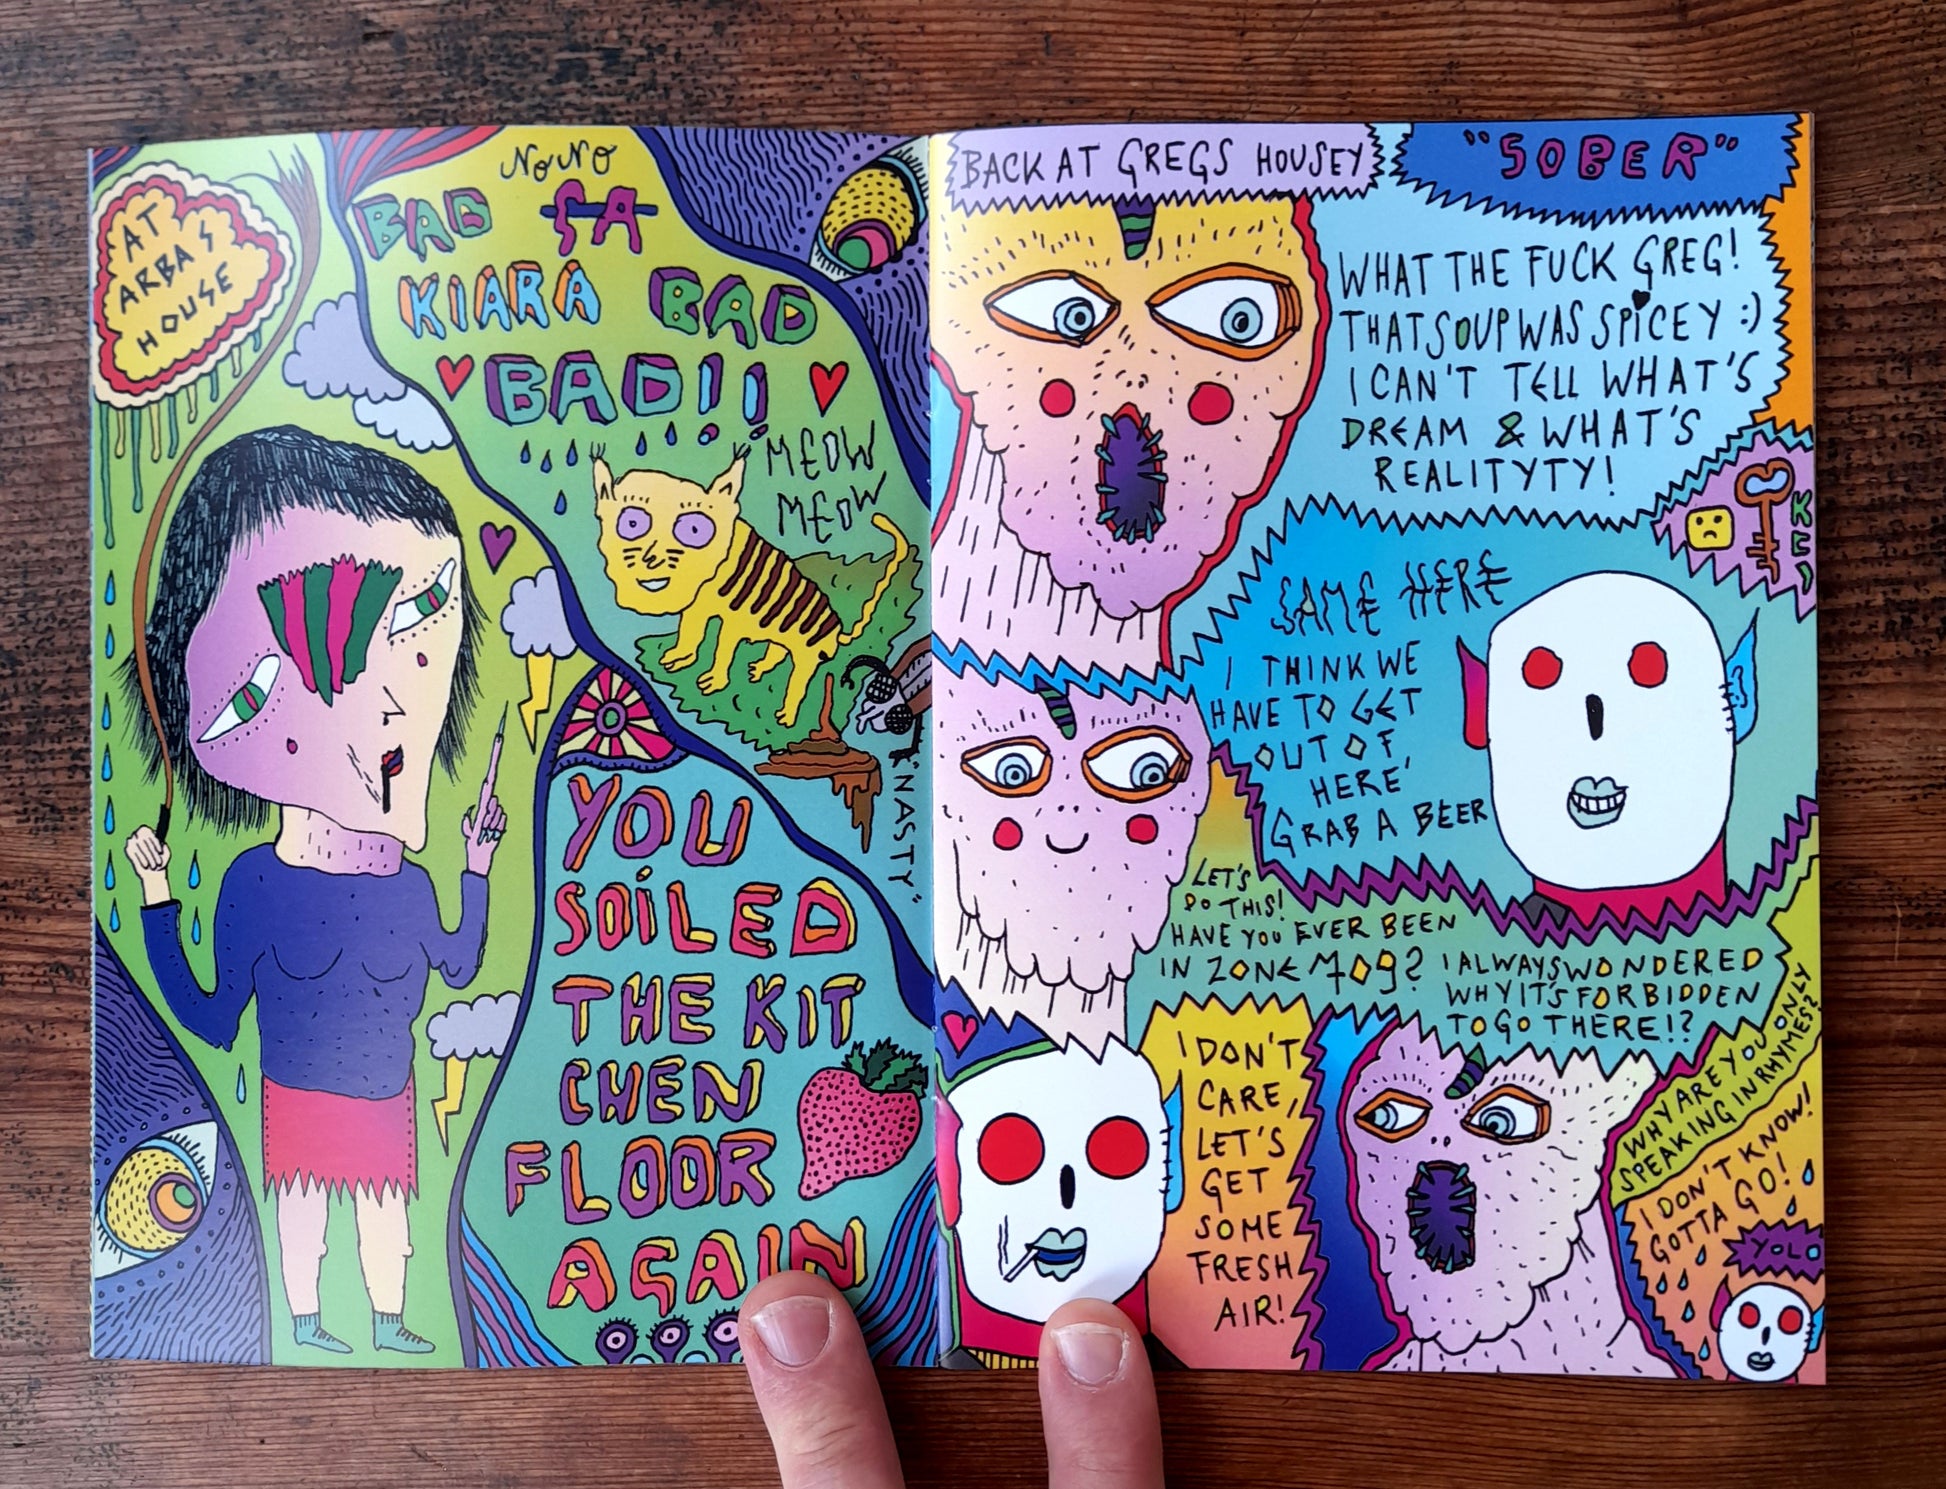 AT
ARBAS
HOUSE
NO NO
BAD SA
KIARA BAD
BAD!!
MEOW
MEOW
"NASTY"
YOU
SOILED
THE KIT
CHEN
FLOOR
AGAIN
BACK AT GREGS HOUSEY
"SOBER"
WHAT THE FUCK GREG!
THAT SOUP WAS SPICEY :)
I CAN'T TELL WHAT'S
DREAM & WHAT'S
REALITYTY!
KEY
SAME HERE
I THINK WE
HAVE TO GET
OUT OF
HERE,
GRAB A BEER
LET'S
DO THIS!
HAVE YOU EVER BEEN
IN ZONE 709?
I ALWAYS WONDERED
WHY IT'S FORBIDDEN
TO GO THERE!?
I DON'T
CARE,
LET'S
GET
SOME
FRESH
AIR!
WHY ARE YOU ONLY
SPEAKING IN RHYMES?
I DON'T KNOW!
GOTTA GO!
YOLO